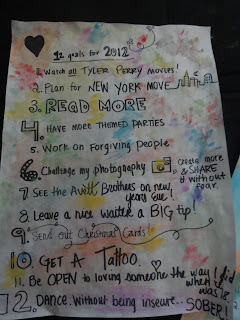 12 goals for 2012
1. Watch all TYLER PERRY movies!
2. Plan for NEW YORK MOVE
3. READ MORE
4. HAVE MORE THEMED PARTIES
5. Work on Forgiving People
6. Challenge my photography
create more
& SHARE
it without
fear.
7 See the Avett Brothers on new
years Eve!
8. Leave a nice waiter a BIG tip!
9. Send out Christmas Cards!
10 GET A TATTOO.
11. Be OPEN to loving someone the way I did
when I
was 16
12. DANCE. Without being insecure.. SOBER!